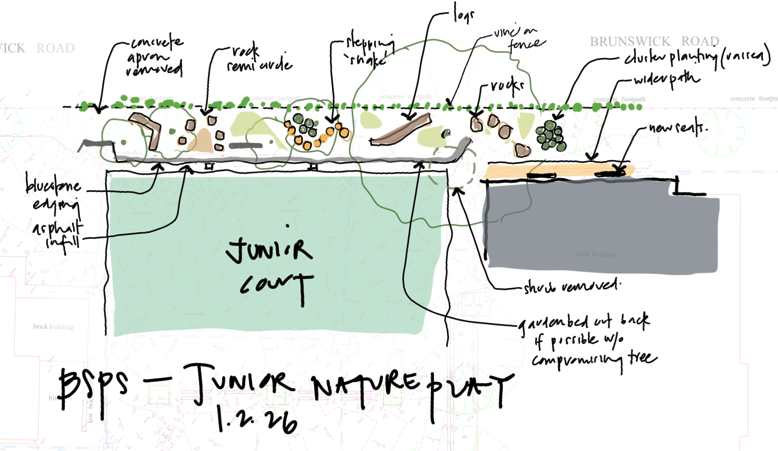 WICK ROAD
BRUNSWICK ROAD
concrete
apron
removed
rock
semi circle
stepping
'snake'
logs
vine on
fence
rocks
cluster planting (raised)
wider path
new seats.
concrete footpath
concrete footpath
bluestone
edging
asphalt
infill
JUNIOR
COURT
shrub removed.
garden bed cut back
if possible w/o
compromising tree
brick building
brick building
BSPS – JUNIOR NATURE PLAY
1.2.26